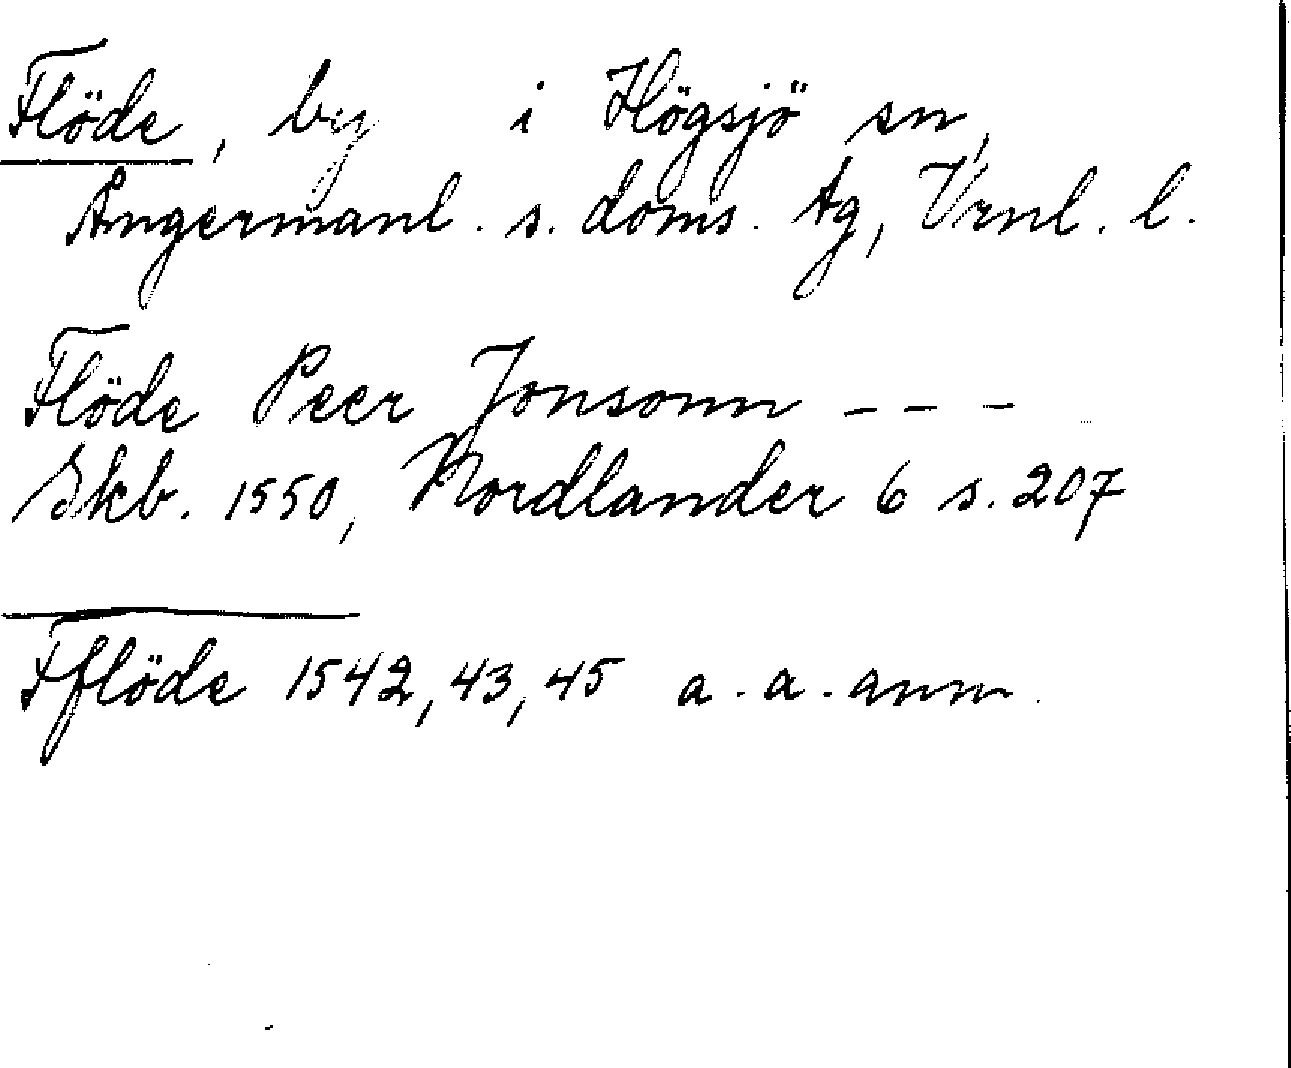 Flöde, by i Högsjö sn,
Ångermanl. s. doms. tg, Vrnl. l.
Flöde Peer Jonsonn - - -
Skb. 1550, Nordlander 6 s. 207
Fflöde 1542, 43, 45 a. a. anm.